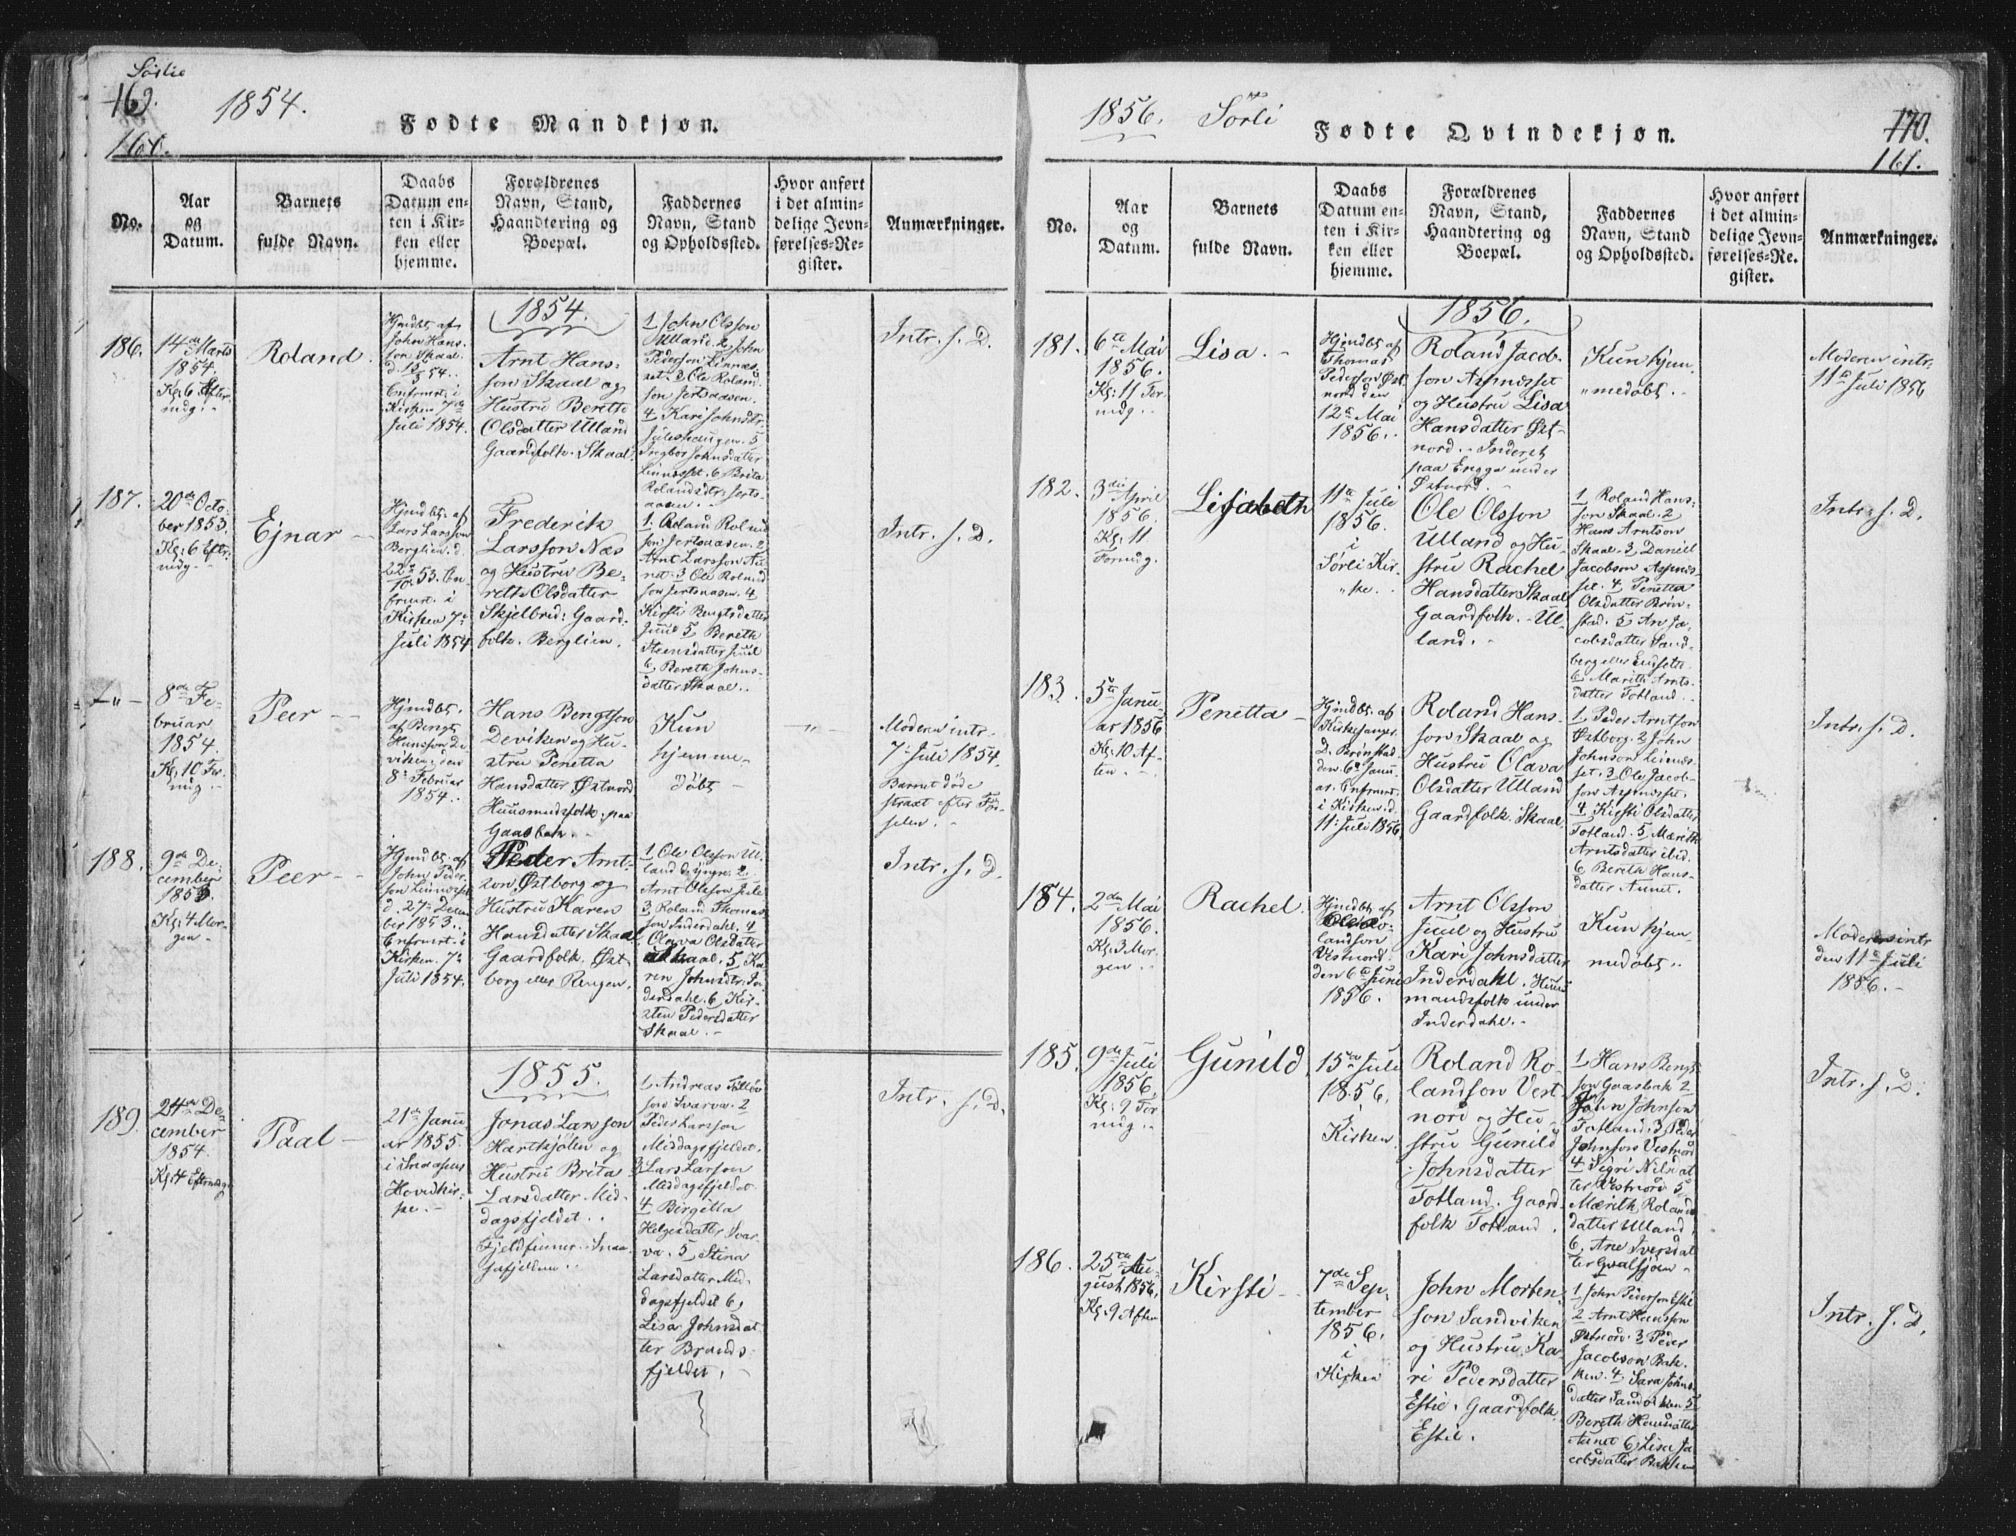 Sörlie
169.
160.
1854.
Fødte Mandkjøn.
No.
Aar
og
Datum.
Barnets
fulde Navn.
Daabs
Datum en-
ten i Kir-
ken eller
hjemme.
Forældrenes
Navn, Stand,
Haandtering og
Boepæl.
Faddernes
Navn, Stand
og Opholdssted.
Hvor anført
i det almin-
delige Jevn-
førelses-Re-
gister.
Anmærkninger.
1854.
186.
14de Marts
1854.
Kl. 6 Efter
midg.
Roland.
Hjmdbt. af
John Hans-
son Skaal
Kirken 7de
Juli 1854.
Arnt Hans-
son Skaal og
Hustru Berette
Olsdatter Ulland
Gaardfolk. Skaal.
1 John Olsson
Ulland. 2 John
Pederson Linnæs-
set. 3 Ole Roland-
son Jertsaasen.
4 Kari Johnsdtr.
Juleshaugen. 5
Ingbor Johnsdatter
Linnæsset. 6 Brita
Rolandsdtr. Jerts-
aasen.
Intr. s. D.
187.
20de Octo-
ber 1853.
Kl. 6 Eftr.
midg.
Ejnar
Hjmdbt. af
Lars Larsson
Berglien. d.
Kirken 7de
Juli 1854.
Frederik
Larsson Næs
og Hustru Be-
rette Olsdatter
Skjelbred: Gaard-
folk. Berglien.
1. Roland Roland
son Jertsaasen. 2
Arnt Larsson Au-
net. 3 Ole Roland
son Jertsaasen. 4
Kirsti Bengtsdatter
Juul 5 Bereth
Steensdatter Juul
6, Bereth Johns-
datter Skaal.
Intr. s. D.
8de Fe-
bruar
1854.
Kl. 10 For-
mig.
Peer
Hjmdbt.
af Bengt
Hansson De-
viken, den
8de Februar
1854.
Hans Bengtson
Deviken og Hu-
stru Penetta
Hansdatter Østnord
Huusmandsfolk paa
Gaasbak.
Kun
hjemme-
døbt
Moderen intr.
7de Juli 1854.
Barnet døde
straxt efter Fød-
selen.
188.
9de De-
cember
1853.
Kl. 4 Mor-
gen.
Peer
Hjmdbt. af
John Peder-
son Linnæsset
d. 27de Decem
ber 1853.
Kirken. 7de
Juli 1854.
Peder Arnt-
son Østborg og
Hustru Karen
Hansdatter Skaal
Gaardfolk. Øst-
borg eller Rengen.
1. Ole Olsson Ul-
land d. yngre. 2.
Arnt Olsson Jule
3, Roland Thomas
son Inderdahl. 4
Olava Olsdatter
Skaal. 5, Ka-
ren Johnsdtr. In-
derdahl. 6, Kir-
sten Pedersdatter
Skaal.
Intr. s. D.
1855.
189.
24de De-
cember
1854.
Kl. 4 Eftermdg.
Paal
21de Janu
ar 1855.
i Snaasens
Hovedkir-
ke.
Jonas Larsson
Hartkjølen og
Hustru Brita
Larsdatter Mid-
dagsfjeldet.
Fjeldfinner. Snaa-
safjeldene.
1. Andreas
son Svarva. 2
Peder Larsson
Middagsfjeldet.
3. Lars Larsson
Middagsfjeldet
4 Birgitta
Helgesdatter Svar-
va. 5, Stina
Larsdatter Mid-
dagsfjeldet 6,
Lisa Johnsdat-
ter Brands-
fjeldet.
Intr. s. D.
1856. Sörli
Fødte Qvindekjøn.
170.
161.
No.
Aar
og
Datum.
Barnets
fulde Navn.
Daabs
Datum en-
ten i Kir-
ken eller
hjemme.
Forældrenes
Navn, Stand,
Haandtering og
Boepæl.
Faddernes
Navn, Stand
og Opholdssted.
Hvor anført
i det almin-
delige Jevn-
førelses-Re-
gister.
Anmærkninger.
1856.
181.
6te Mai
1856.
Kl. 11 For-
midg.
Lisa.
Hjmdbt. af
Thomas
Pederson Øst-
nord den
12te Mai
1856.
Roland Jacob-
son Aspnæsset
og Hustru Lisa
Hansdatter Øst-
nord. Inderst
paa Engge under
Østnord.
Kun hjem-
medøbt.
Moderen intr.
11te Juli 1856
182.
3die April
1856.
Kl. 11
Formdg.
Lisabeth
11te Juli
1856.
i
Sørli Kir-
ke.
Ole Olsson
Ulland og Hu-
stru Rachel
Hansdatter Skaal
Gaardfolk. Ul-
land.
1 Roland Hans-
son Skaal. 2
Hans Arntson
Skaal. 3, Daniel
Jacobson Aspnæs-
set. 4 Penetta
Olsdatter Brøn-
stad. 5 An Ja-
cobsdatter Sand-
berg eller
6 Marith Arnts-
datter Totland.
Intr. s. D.
183.
5te Janu-
ar 1856
Kl. 10 Af-
ten.
Penetta
Hjmdbt. af
Kirkesanger
D. Brønstad
den 6te Janu-
ar.
i Kirken d.
11te Juli 1856
Roland Hans-
son Skaal og
Hustru Olava
Olsdatter Ulland
Gaardfolk. Skaal.
1, Peder Arntson
Østborg. 2 John
Johnson Linnæs-
set. 3 Ole Jacob-
son Aspnæsset.
4 Kirsti Olsdatter
Totland. 5, Marith
Arntsdatter ibid.
6, Berith Hans-
datter Aunet.
Intr. s. D.
184.
2den Mai
1856.
Kl. 3 Mor-
gen.
Rachel.
Hjmdbt. af
Ole Ro-
landson
Vestnord.
den 6te Juni
1856.
Arnt Olsson
Juul og Hustru
Kari Johnsdatter
Inderdahl. Huus
mandsfolk under
Inderdahl.
Kun hjem-
medøbt.
Moderen intr
den 11te Juli
1856.
185.
9de Juli
1856
Kl. 9 For-
midg.
Gunild
15de Juli
1856.
i
Kirken
Roland Ro-
landson Vest-
nord og Hu-
stru Gunild
Johnsdatter
Totland. Gaard-
folk Totland.
1, Hans Bengt-
son Gaasbak 2
John Johnson
Totland. 3, Peder
Johnson Vestnord
4 Sigri Nilsdat
ter Vestnord 5
Marith Rolands
datter Ulland
6, Ane Iversdat
ter Qvælsjoen
Intr. s. D.
186.
25de Au-
gust 1856,
Kl. 9 Aften
Kirsti
7de Sep-
tember
1856.
i
Kirken
John Morten-
son Sandviken
og Hustru Ka-
ri Pedersdatter
Estil. Gaardfolk.
Estil.
1 John Peterson Estil
2 Arnt Hansson
Østnord. 3 Peder
Jacobson Bak-
ken. 4, Sara Johns-
datter Sandviken 5
Bereth Hansdatter
Aunet 6, Lisa Ja-
cobsdatter Bakken
Intr. s. D.